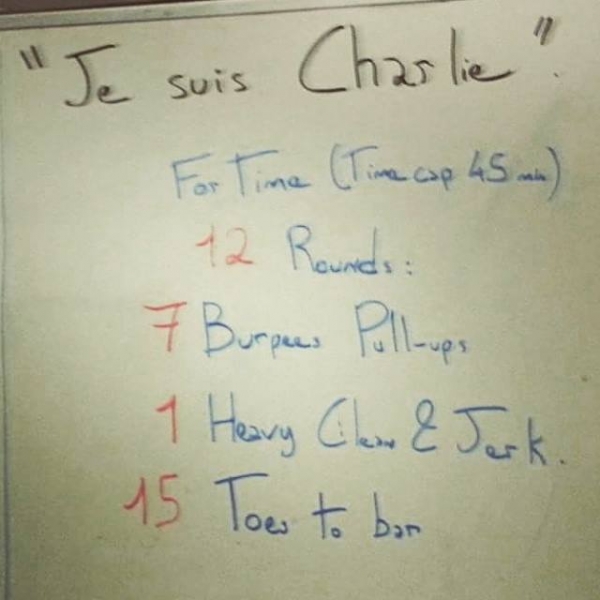 "Je suis Charlie".
For Time (Time cap 45 min)
12 Rounds:
7 Burpees Pull-ups
1 Heavy Clean & Jerk.
15 Toes to bar